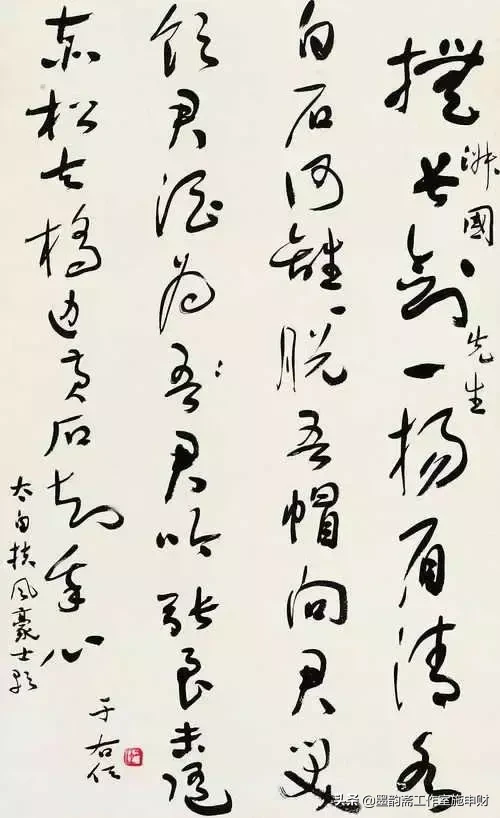 國先生
撫長劍一揚眉清水
白石何離離脫吾帽向君笑
飲君酒為吾君吟張良未逐
赤松去橋邊黃石知我心
太白扶風豪士歌
于右任
头条 @墨韵斋工作室施申财